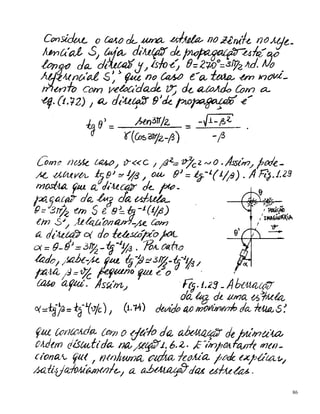 Considere o caso de uma estrela no zênite no refe-
rencial S, cuja direção de propagação está ao
longo da direção y, isto é, θ = 270° = 3π/2 rd. No
referencial S', que no caso é a terra em movi-
mento com velocidade v, de acordo com a
eq. (1.72), a direção θ' de propagação é
tg θ' = sen 3π/2 / γ(cos 3π/2 - β) = -√1-β² / -β .
Como nesse caso, v << c, β² = v²/c² ~ 0. Assim, pode-
se escrever tg θ' = 1/β, ou θ' = tg⁻¹(1/β). A Fig. 1.29
mostra que a direção de pro-
pagação da luz da estrela
θ = 3π/2 em S e θ' = tg⁻¹(1/β)
em S', relacionam-se com
a direção α do telescópio por
α = θ - θ' = 3π/2 - tg⁻¹1/β. Por outro
lado, sabe-se que tg⁻¹β = 3π/2 - tg⁻¹1/β,
para β = v/c pequeno que é o
caso aqui. Assim,
α = tg⁻¹β = tg⁻¹(v/c), (1.74)
θ
posição
imaginária
v
θ'
Fig. 1.29 - Aberração
da luz de uma estrela
devido ao movimento da terra, S'.
que concorda com o efeito da aberração de primeira
ordem discutida na seção 1.6.2. É importante men-
cionar que, nenhuma outra teoria pode explicar,
satisfatoriamente, a aberração das estrelas.
86